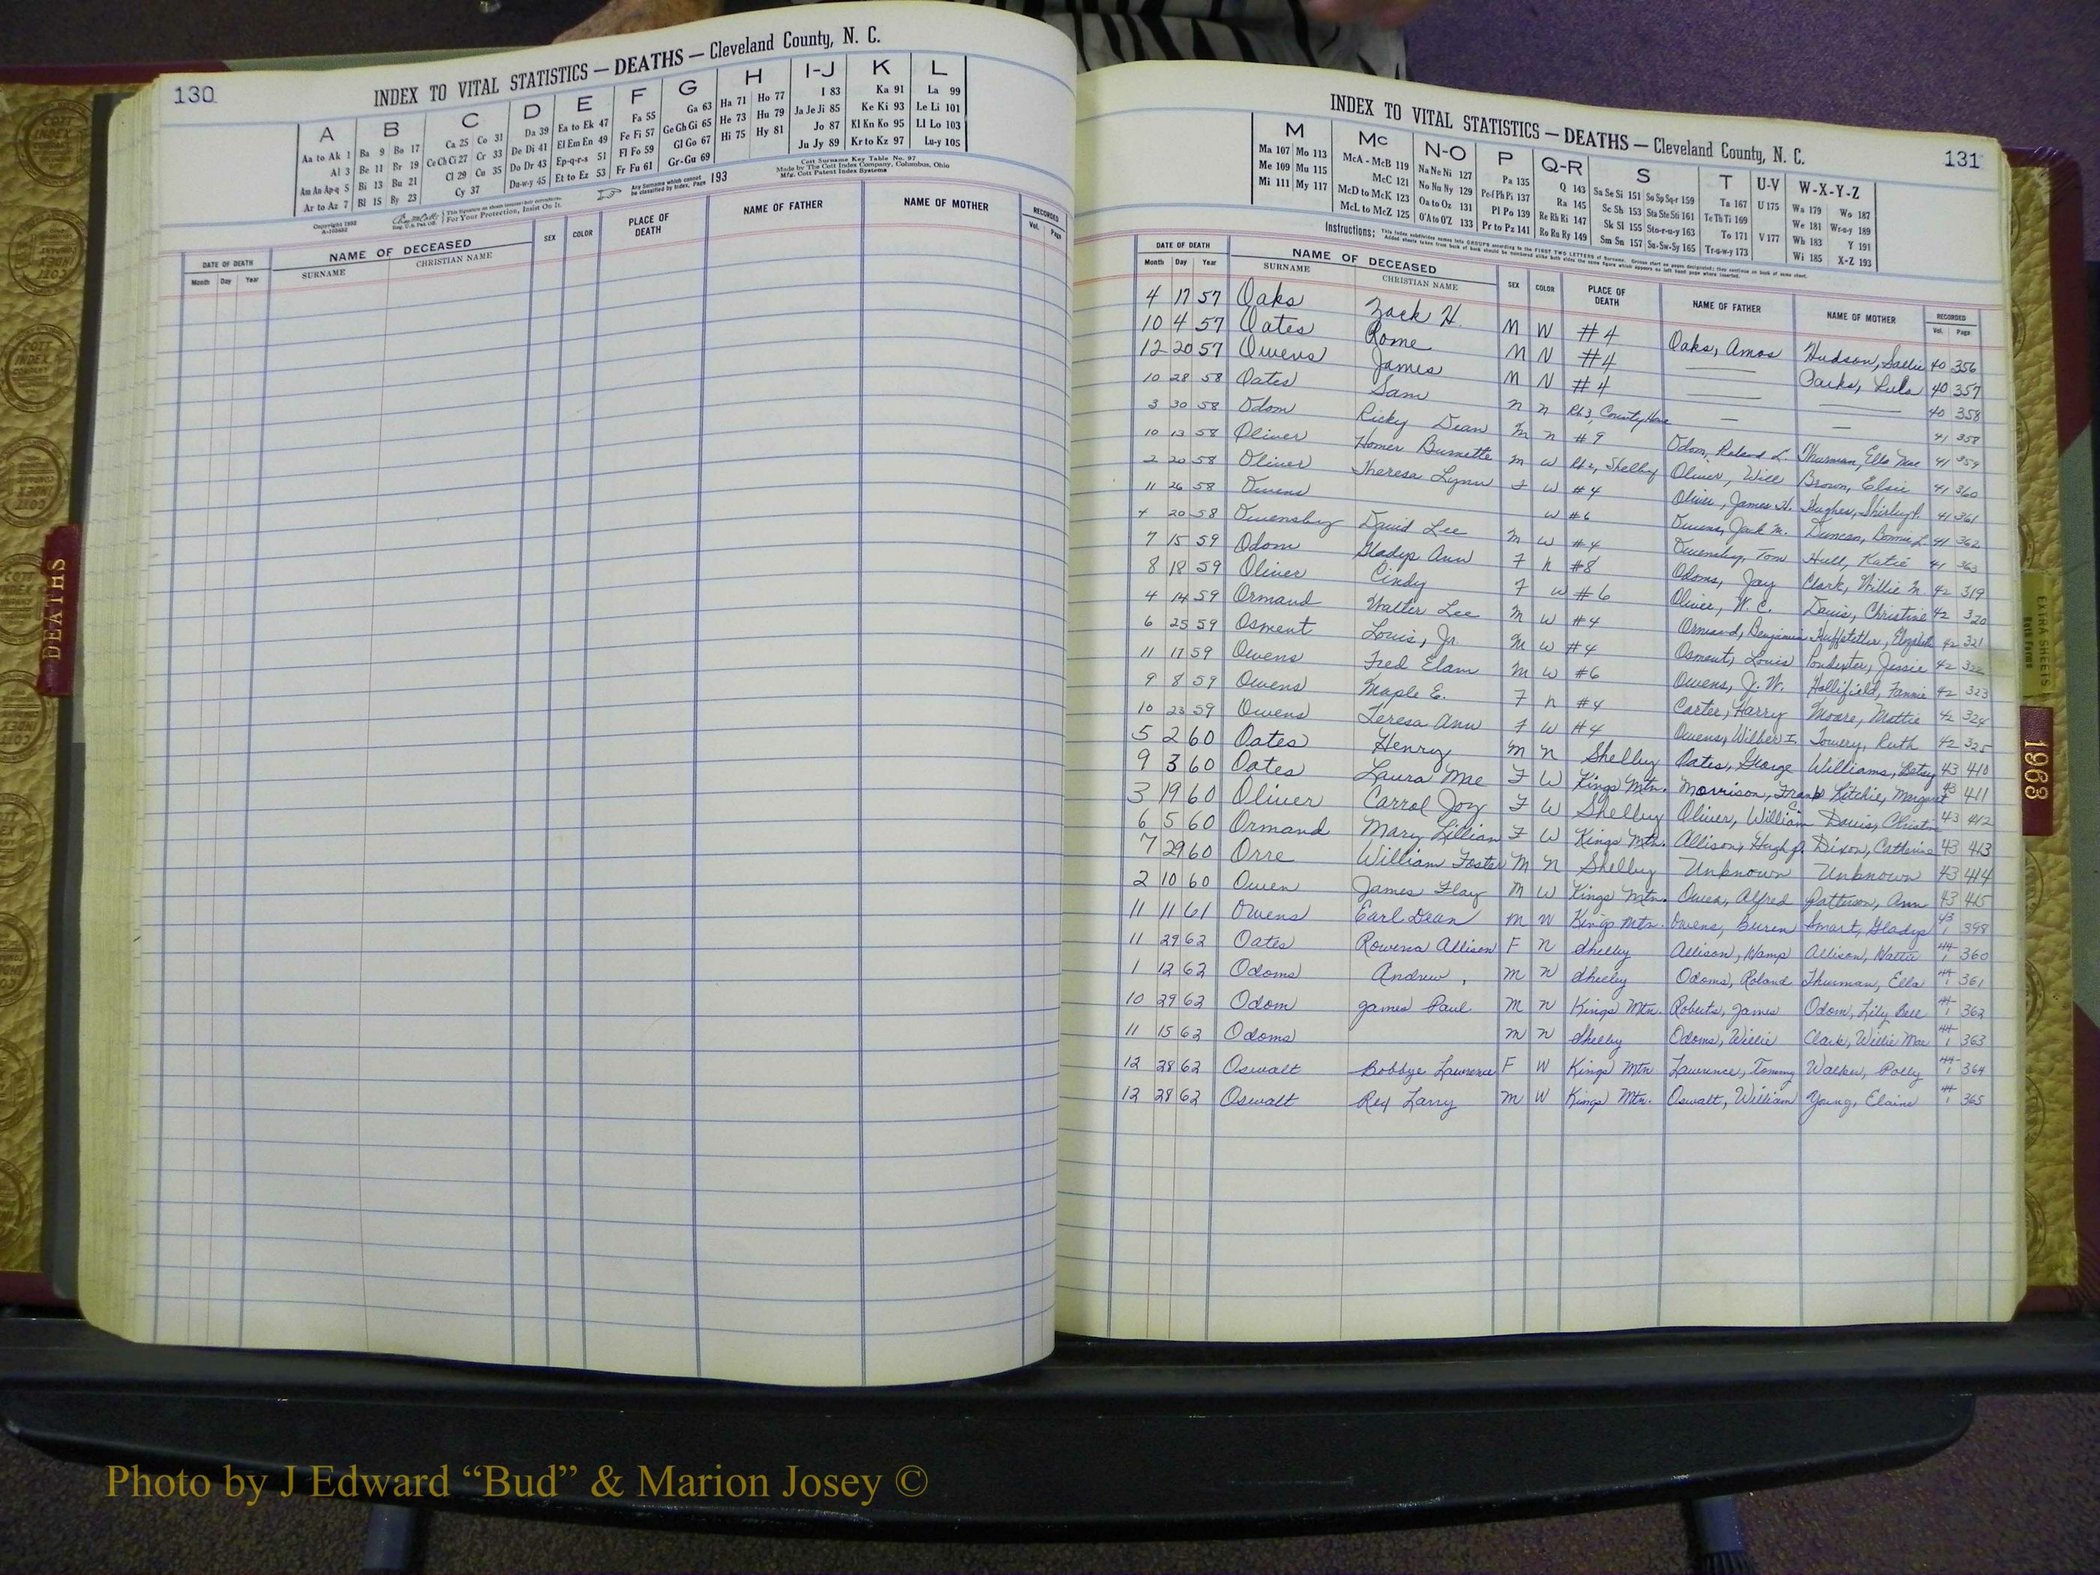 130
INDEX TO VITAL STATISTICS — DEATHS — Cleveland County, N. C.
A B C D E F G H I-J K L
Aa to Ak 1 Ba 9 Bo 17 Ca 25 Co 31 Da 39 Ea to Ek 47 Fa 55 Ga 63 Ha 71 Ho 77 I 83 Ka 91 La 99
Al 3 Be 11 Br 19 Ce Ch Ci 27 Cr 33 De Di 41 El Em En 49 Fe Fi 57 Ge Gh Gi 65 He 73 Hu 79 Ja Je Ji 85 Ke Ki 93 Le Li 101
Am An Ap-q 5 Bi 13 Bu 21 Cl 29 Cu 35 Do Dr 43 Ep-q-r-s 51 Fl Fo 59 Gl Go 67 Hi 75 Hy 81 Jo 87 Kl Kn Ko 95 Ll Lo 103
Ar to Az 7 Bl 15 By 23 Cy 37 Du-w-y 45 Et to Ez 53 Fr Fu 61 Gr-Gu 69 Ju Jy 89 Kr to Kz 97 Lu-y 105
Any Surname which cannot be classified by Index, Page 193
Cott Surname Key Table No. 97
Made by The Cott Index Company, Columbus, Ohio
Mfg. Cott Patent Index Systems
For Your Protection, Insist On It.
DATE OF DEATH NAME OF DECEASED SEX COLOR PLACE OF DEATH NAME OF FATHER NAME OF MOTHER RECORDED
Month Day Year SURNAME CHRISTIAN NAME Vol. Page
DEATHS
INDEX TO VITAL STATISTICS — DEATHS — Cleveland County, N. C.
131
M Mc N-O P Q-R S T U-V W-X-Y-Z
Ma 107 Mo 113 McA - McB 119 Na Ne Ni 127 Pa 135 Q 143 Sa Se Si 151 So Sp Sq-r 159 Ta 167 U 175 Wa 179 Wo 187
Me 109 Mu 115 McC 121 No Nu Ny 129 Pe-f Ph Pi 137 Ra 145 Sc Sh 153 Sta Ste Sti 161 Te Th Ti 169 We 181 Wr-u-y 189
Mi 111 My 117 McD to McK 123 Oa to Oz 131 Pl Po 139 Re Rh Ri 147 Sk Sl 155 Sto-r-u-y 163 To 171 V 177 Wh 183 Y 191
McL to McZ 125 O'A to O'Z 133 Pr to Pz 141 Ro Ru Ry 149 Sm Sn 157 Su-Sw-Sy 165 Tr-u-w-y 173 Wi 185 X-Z 193
DATE OF DEATH NAME OF DECEASED SEX COLOR PLACE OF DEATH NAME OF FATHER NAME OF MOTHER RECORDED
Month Day Year SURNAME CHRISTIAN NAME Vol. Page
4 17 57 Oaks Zack H. M W #4 Oaks, Amos Hudson, Sallie 40 356
10 4 57 Oates Rome M N #4 — Parks, Lula 40 357
12 20 57 Owens James M N #4 — — 40 358
10 28 58 Oates Sam n n Rt 3, County Home — — 41 358
3 30 58 Odom Ricky Dean M n #9 Odom, Roland L. Thurman, Ella Mae 41 359
10 13 58 Oliver Homer Burnette M W Rt 2, Shelby Oliver, Will Brown, Elsie 41 360
2 20 58 Oliver Theresa Lynn F W #4 Oliver, James H. Hughes, Shirley P. 41 361
11 26 58 Owens W #6 Owens, Jack M. Duncan, Bonnie L. 41 362
4 20 58 Owensby David Lee M W #4 Owensby, Tom Hull, Katie 41 363
7 15 59 Odom Gladys Ann F n #8 Odoms, Jay Clark, Willie M 42 319
8 18 59 Oliver Cindy F W #6 Oliver, W. C. Davis, Christine 42 320
4 14 59 Ormand Walter Lee M W #4 Ormand, Benjamin Huffstetler, Elizabeth 42 321
6 25 59 Osment Louis, Jr. M W #4 Osment, Louis Poindexter, Jessie 42 322
11 17 59 Owens Fred Elam M W #6 Owens, J. W. Hollifield, Fannie 42 323
9 8 59 Owens Maple E. F n #4 Carter, Harry Moore, Mattie 42 324
10 23 59 Owens Teresa Ann F W #4 Owens, Wilber I. Towery, Ruth 42 325
5 2 60 Oates Henry M N Shelby Oates, George Williams, Betsy 43 410
9 3 60 Oates Laura Mae F W Kings Mtn. Morrison, Frank Ritchie, Margaret 43 411
3 19 60 Oliver Carrol Joy F W Shelby Oliver, William C. Davis, Christine 43 412
6 5 60 Ormand Mary Lillian F W Kings Mtn. Allison, Hugh J. Dixon, Catherine 43 413
7 29 60 Orre William Foster M N Shelby Unknown Unknown 43 414
2 10 60 Owen James Flay M W Kings Mtn. Owen, Alfred Patterson, Ann 43 415
11 11 61 Owens Earl Dean M W Kings Mtn. Owens, Buren Smart, Gladys 43 1 398
11 29 62 Oates Rowena Allison F N Shelby Allison, Wamp Allison, Hattie 44 1 360
1 12 62 Odoms Andrew M N Shelby Odoms, Roland Thurman, Ella 44 1 361
10 29 62 Odom James Paul M N Kings Mtn. Roberts, James Odom, Lily Bell 44 1 362
11 15 62 Odoms M N Shelby Odoms, Willie Clark, Willie Mae 44 1 363
12 28 62 Oswalt Bobbye Lawrence F W Kings Mtn Lawrence, Tommy Walker, Polly 44 1 364
12 28 62 Oswalt Rex Larry M W Kings Mtn. Oswalt, William Young, Elaine 44 1 365
EXTRA SHEETS
1963
Photo by J Edward “Bud” & Marion Josey ©